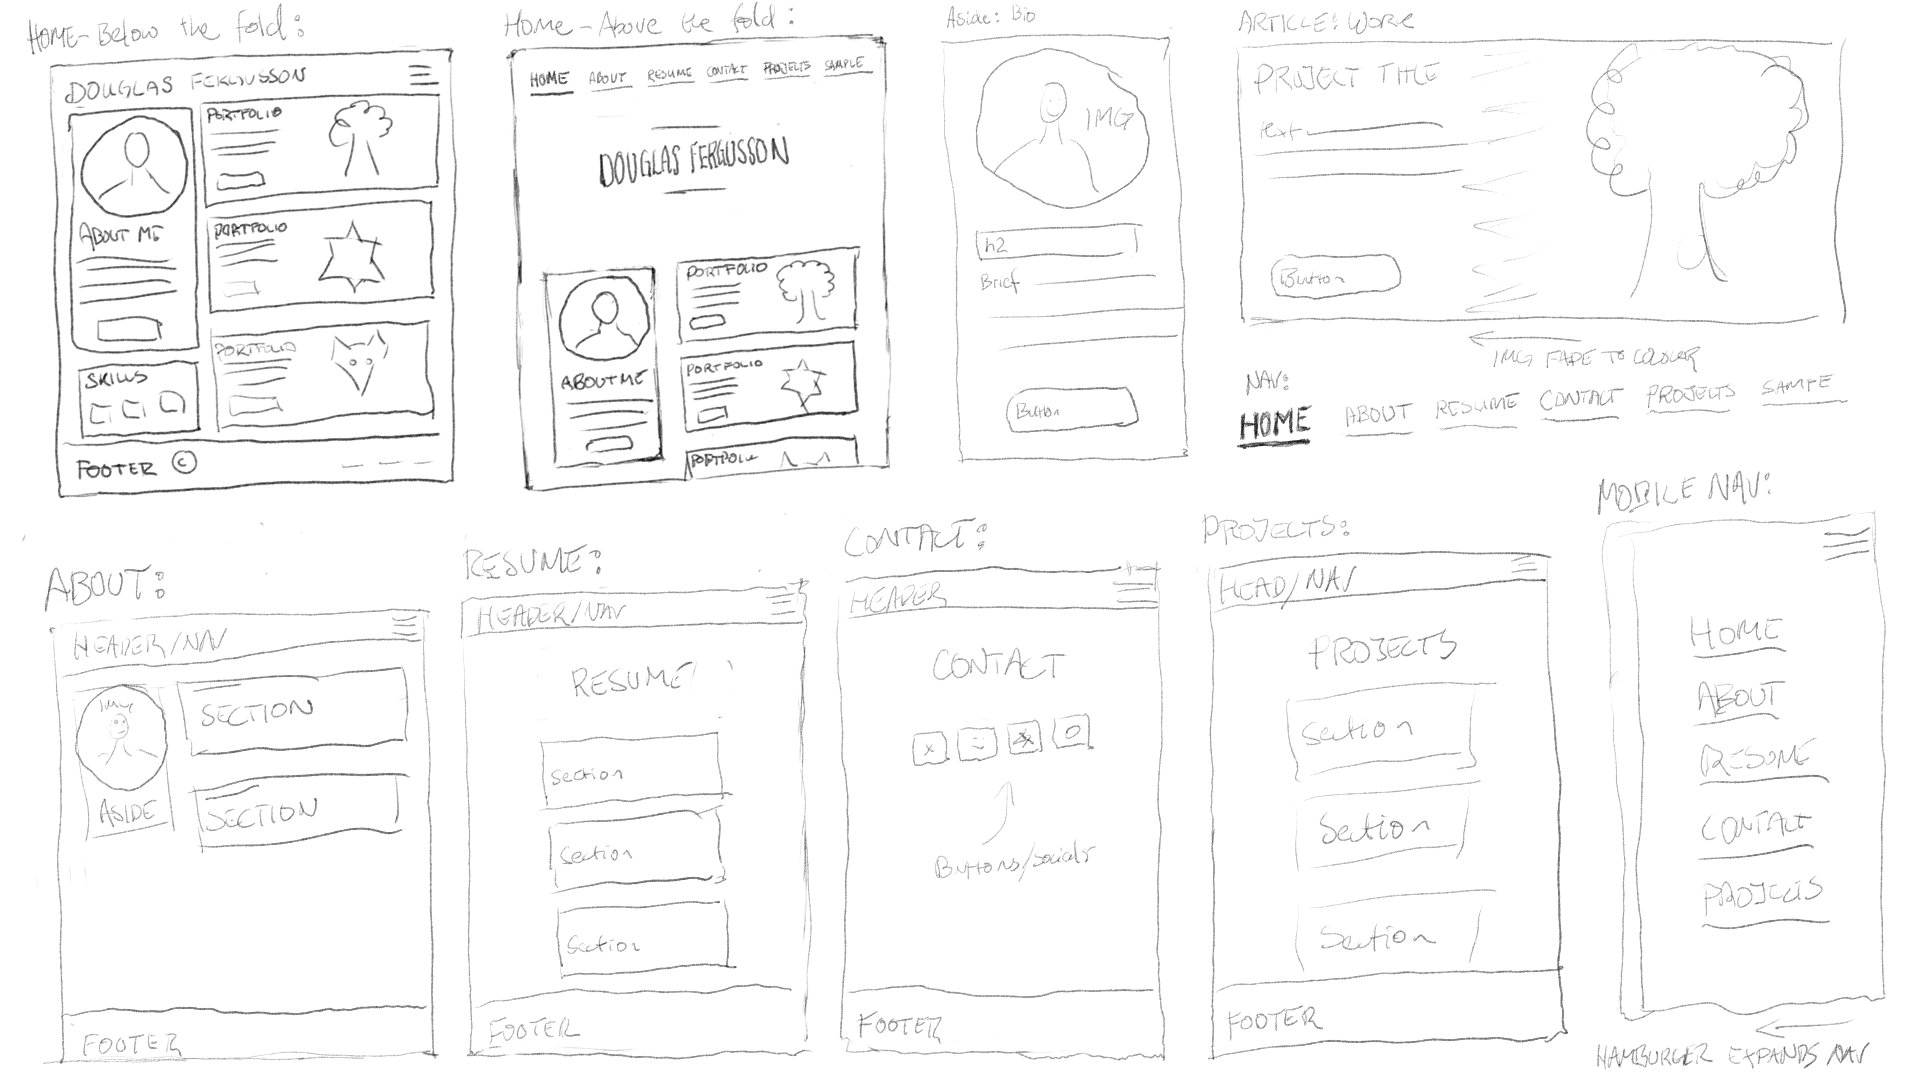 HOME - Below the fold:
DOUGLAS FERGUSSON
PORTFOLIO
ABOUT ME
PORTFOLIO
PORTFOLIO
SKILLS
FOOTER ©
Home - Above the fold:
HOME ABOUT RESUME CONTACT PROJECTS SAMPLE
DOUGLAS FERGUSSON
PORTFOLIO
ABOUT ME
PORTFOLIO
PORTFOLIO
Aside: Bio
IMG
h2
Brief
Button
ARTICLE: WORK
PROJECT TITLE
text
Button
IMG FADE TO COLOUR
NAV:
HOME ABOUT RESUME CONTACT PROJECTS SAMPLE
ABOUT:
HEADER/NAV
IMG
SECTION
ASIDE
SECTION
FOOTER
RESUME:
HEADER/NAV
RESUME
Section
Section
Section
FOOTER
CONTACT:
HEADER
CONTACT
Buttons/socials
FOOTER
PROJECTS:
HEAD/NAV
PROJECTS
Section
Section
Section
FOOTER
MOBILE NAV:
HOME
ABOUT
RESUME
CONTACT
PROJECTS
HAMBURGER EXPANDS NAV